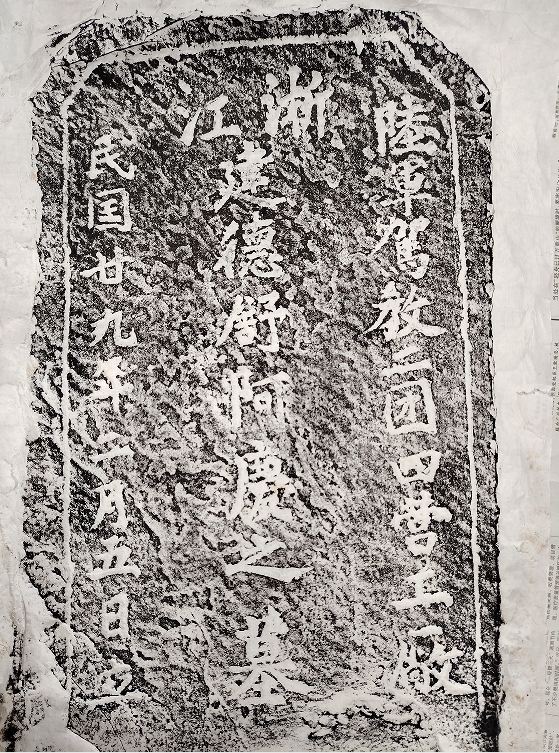 陸軍駕教二团四营工厰
浙江
建德舒阿慶之墓
民国廿九年二月五日立